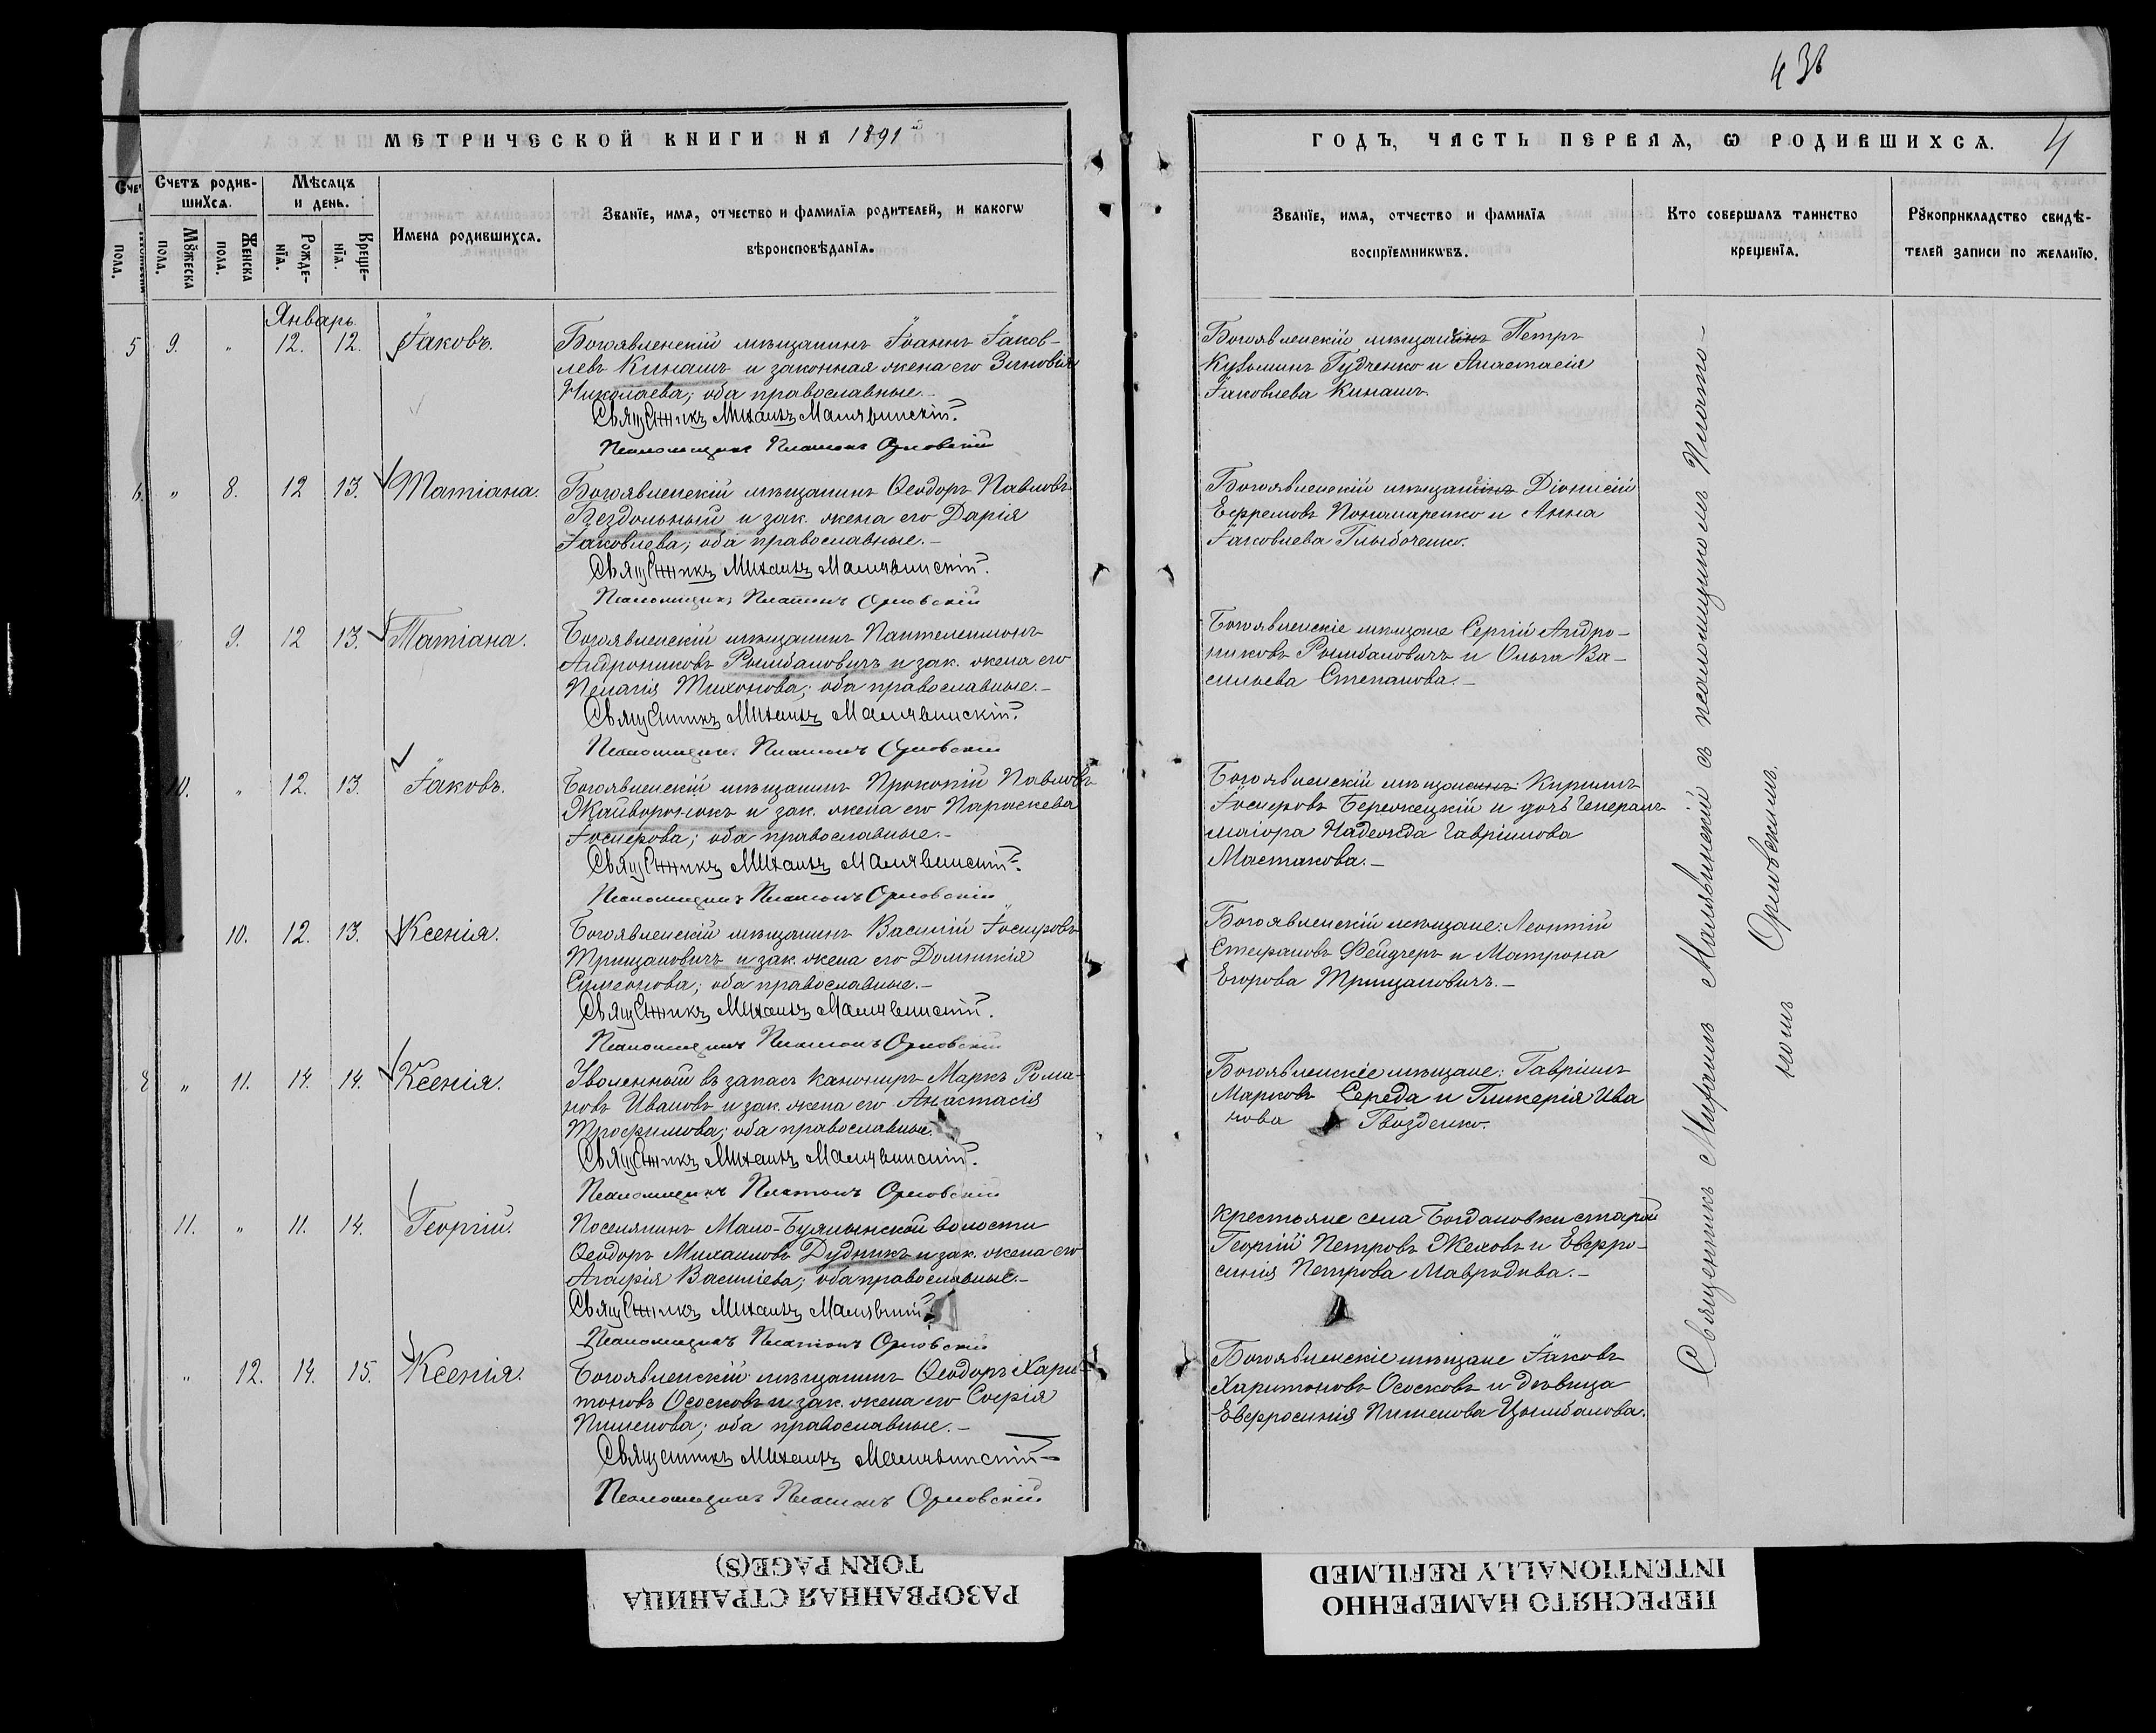 438
МЕТРИЧЕСКОЙ КНИГИ НА 1891й
ГОДЪ, ЧАСТЬ ПЕРВАЯ, Ѡ РОДИВШИХСѦ. 4
Счетъ родив-
шихсѧ.
Мѣсѧцъ
и день.
Мꙋжеска
пола.
Женска
пола.
Рожде-
нїѧ.
Креще-
нїѧ.
Имена родившихсѧ.
Званїе, имѧ, отчество и фамилїѧ родителей, и какогѡ
вѣроисповѣданїѧ.
Званїе, имѧ, отчество и фамилїѧ
воспрїемникѡвъ.
Кто совершалъ таинство
крещенїѧ.
Рꙋкоприкладство свидѣ-
телей записи по желанїю.
Январь.
9. " 12. 12. Іаковъ.
Богоявленскій мѣщанинъ Іоаннъ Іаков-
левъ Кинашъ и законная жена его Зиновія
Николаева; оба православные.-
Священникъ Михаилъ Малявинскій.
Псаломщикъ Платонъ Орловскій
Богоявленскій мѣщанинъ Петръ
Кузьминъ Гудченко и Анастасія
Іаковлева Кинашъ.
" 8. 12 13. Татіана.
Богоявленскій мѣщанинъ Ѳеодоръ Павловъ
Бездольный и зак. жена его Дарія
Іаковлева; оба православные.-
Священникъ Михаилъ Малявинскій.
Псаломщикъ Платонъ Орловскій
Богоявленскій мѣщанинъ Діонисій
Ефремовъ Пономаренко и Анна
Іаковлева Глыбоченко.
9. 12 13. Татіана.
Богоявленскій мѣщанинъ Пантелеимонъ
Андрониковъ Рымбаловичъ и зак. жена его
Пелагія Тихонова; оба православные.-
Священникъ Михаилъ Малявинскій.
Псаломщикъ Платонъ Орловскій
Богоявленскіе мѣщане Сергій Андро-
никовъ Рымбаловичъ и Ольга Ва-
сильева Степанова.-
10. " 12. 13. Іаковъ.
Богоявленскій мѣщанинъ Прокопій Павловъ
Жайворонокъ и зак. жена его Параскева
Іосифова; оба православные.-
Священникъ Михаилъ Малявинскій.
Псаломщикъ Платонъ Орловскій
Богоявленскій мѣщанинъ Кириллъ
Іосифовъ Бережецкій и дочь Генералъ
маіора Надежда Гавріилова
Мастакова.-
10. 12. 13. Ксенія.
Богоявленскій мѣщанинъ Василій Іосифовъ
Трищановичъ и зак. жена его Домникія
Симеонова; оба православные.-
Священникъ Михаилъ Малявинскій.
Псаломщикъ Платонъ Орловскій
Богоявленскій мѣщане: Леонтій
Стефановъ Фейдчеръ и Матрона
Егорова Трищановичъ.-
" 11. 14. 14. Ксенія.
Уволенный въ запасъ канониръ Маркъ Рома-
новъ Ивановъ и зак. жена его Анастасія
Трофимова; оба православные.
Священникъ Михаилъ Малявинскій.
Псаломщикъ Платонъ Орловскій
Богоявленскіе мѣщане: Гавріилъ
Марковъ Середа и Гликерія Ива
нова Гвозденко.
11. " 11. 14. Георгій.
Поселянинъ Мало-Буялыкской волости
Ѳеодоръ Михаиловъ Дудникъ и зак. жена его
Агафія Василіева; оба православные.-
Священникъ Михаилъ Малявинскій
Псаломщикъ Платонъ Орловскій
Крестьяне села Богдановки старой
Георгій Петровъ Жеховъ и Евфро-
синія Петрова Мавродива.-
" 12. 14. 15. Ксенія.
Богоявленскій мѣщанинъ Ѳеодоръ Хари-
тоновъ Ососковъ и зак. жена его Софія
Пименова; оба православные.-
Священникъ Михаилъ Малявинскій
Псаломщикъ Платонъ Орловскій
Богоявленскіе мѣщане Іаковъ
Харитоновъ Ососковъ и дѣвица
Евфросинія Пименова Цымбалова.
Священникъ Михаилъ Малявинскій съ псаломщикомъ Плато-
номъ Орловскимъ.
РАЗОРВАННАЯ СТРАНИЦА
TORN PAGE(S)
ПЕРЕСНЯТО НАМЕРЕННО
INTENTIONALLY REFILMED